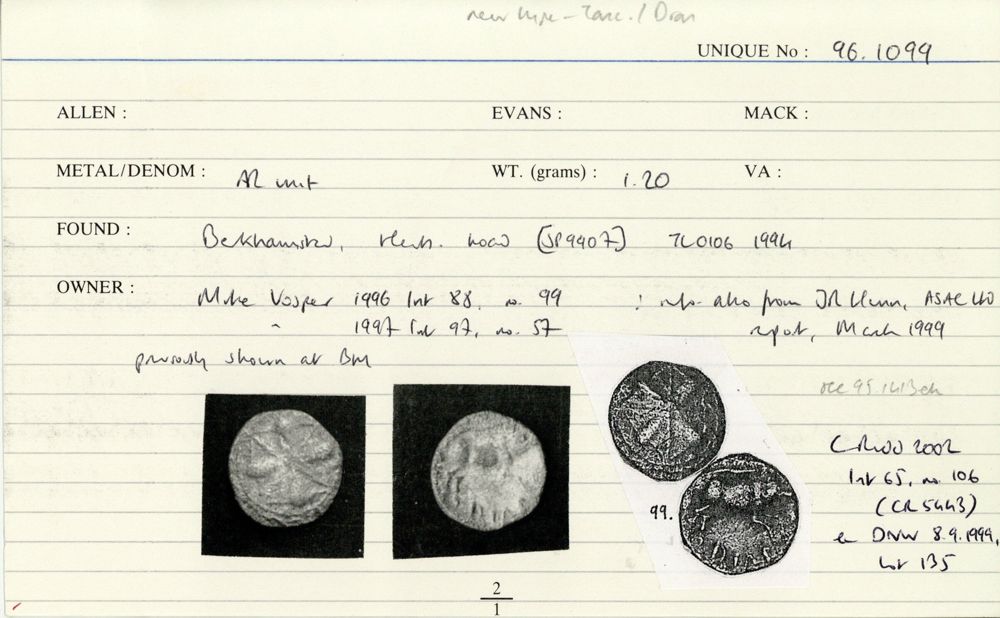 new type - Tasc. / Dran
UNIQUE No : 96.1099
ALLEN : EVANS : MACK :
METAL/DENOM : AR unit WT. (grams) : 1.20 VA :
FOUND : Berkhamsted, Herts. [SP9907] TL0106 1994
OWNER : Mike Vosper 1996 Int 88, no. 99 : info also from JR Hunn,
" 1997 Int 97, no. 57 report, March 1999
previously shown at BM
see 95.
CRWD 2002
Int 65, no. 106
(CR 5443)
ex DNW 8.9.1999,
lot 135
99.
2
1